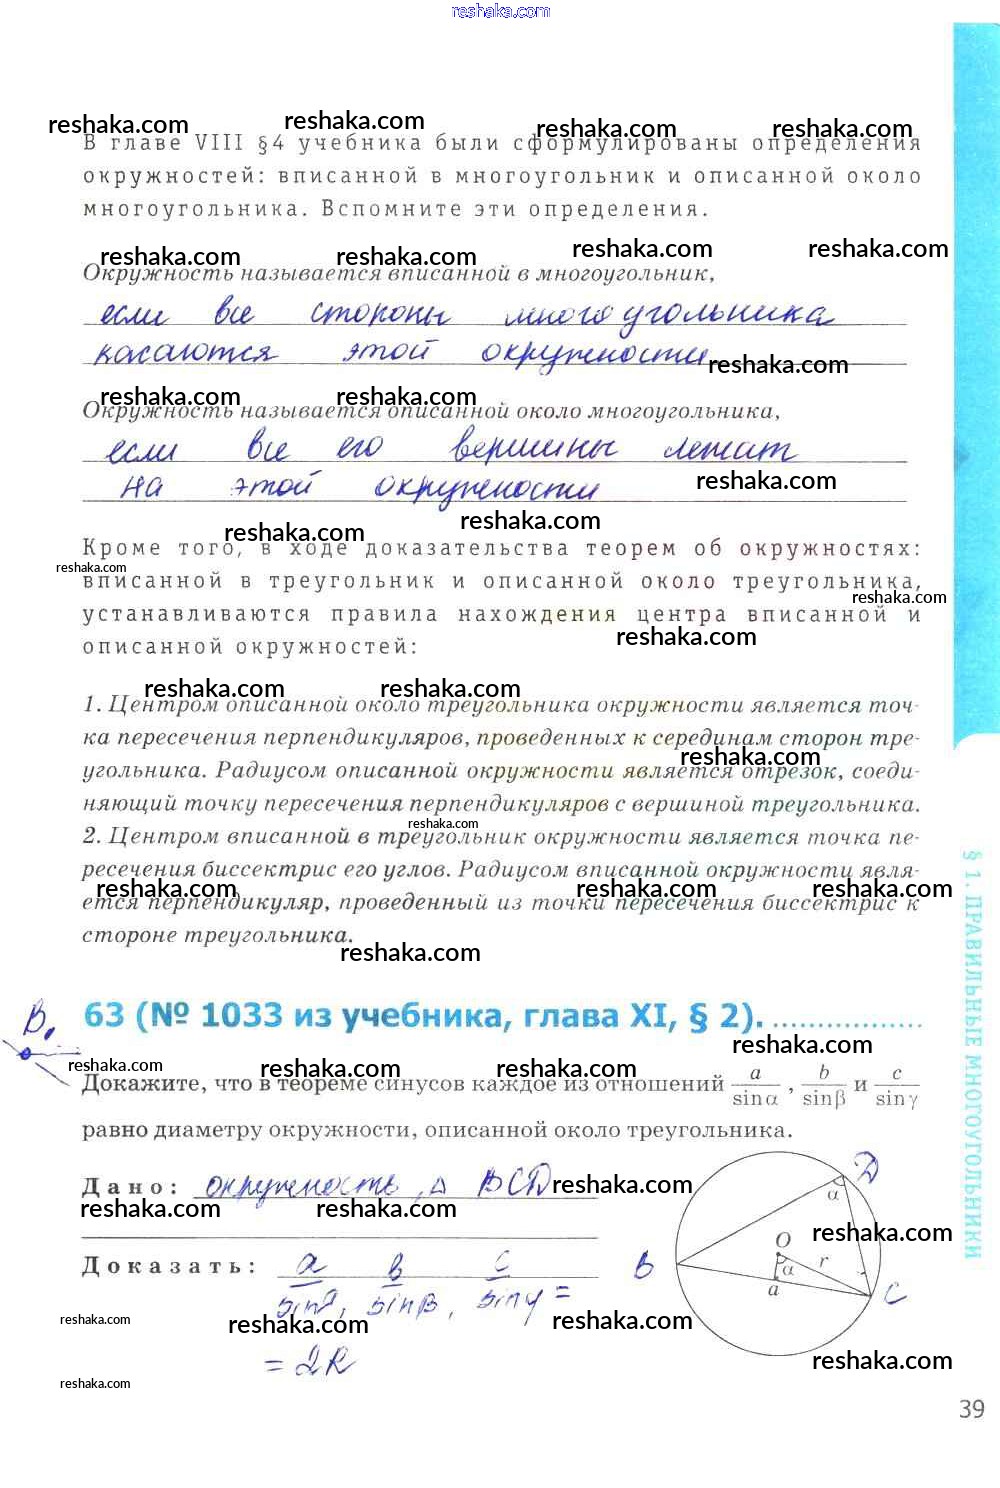 reshaka.com
reshaka.com reshaka.com reshaka.com reshaka.com
В главе VIII §4 учебника были сформулированы определения
окружностей: вписанной в многоугольник и описанной около
многоугольника. Вспомните эти определения.
reshaka.com reshaka.com reshaka.com reshaka.com
Окружность называется вписанной в многоугольник,
если все стороны многоугольника
касаются этой окружности
reshaka.com
reshaka.com reshaka.com
Окружность называется описанной около многоугольника,
если все его вершины лежат
reshaka.com
на этой окружности
reshaka.com reshaka.com
Кроме того, в ходе доказательства теорем об окружностях:
reshaka.com
вписанной в треугольник и описанной около треугольника,
reshaka.com
устанавливаются правила нахождения центра вписанной и
reshaka.com
описанной окружностей:
reshaka.com reshaka.com
1. Центром описанной около треугольника окружности является точ-
ка пересечения перпендикуляров, проведенных к серединам сторон тре-
reshaka.com
угольника. Радиусом описанной окружности является отрезок, соеди-
няющий точку пересечения перпендикуляров с вершиной треугольника.
reshaka.com
2. Центром вписанной в треугольник окружности является точка пе-
ресечения биссектрис его углов. Радиусом вписанной окружности явля-
reshaka.com reshaka.com reshaka.com
ется перпендикуляр, проведенный из точки пересечения биссектрис к
стороне треугольника.
reshaka.com
§ 1. ПРАВИЛЬНЫЕ МНОГОУГОЛЬНИКИ
В.
63 (№ 1033 из учебника, глава XI, § 2). ................
reshaka.com reshaka.com reshaka.com
Докажите, что в теореме синусов каждое из отношений a/sin α , b/sin β и c/sin γ
равно диаметру окружности, описанной около треугольника.
Дано: окружность, Δ BCD
reshaka.com reshaka.com reshaka.com
D
α
reshaka.com
O
Доказать: a b c
B
α r
a
C
sin , sin β, sin γ =
reshaka.com reshaka.com reshaka.com
= 2R
reshaka.com
reshaka.com
39